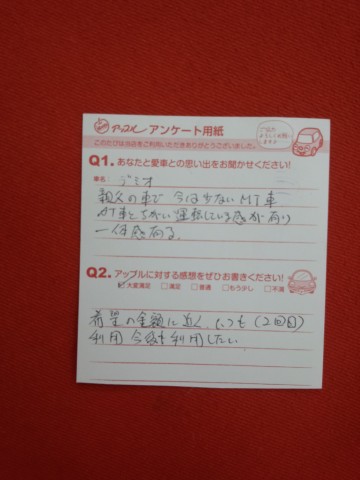 アップル アンケート用紙
このたびは当店をご利用いただきありがとうございました。
Q1. あなたと愛車との思い出をお聞かせください!
車名: デミオ
親父の車で 今は少ない MT車
AT車とちがい運転している感が有り
一体感有る。
Q2. アップルに対する感想をぜひお書きください!
大変満足 満足 普通 もう少し 不満
希望の金額に近く、いつも(2回目)
利用 今後も利用したい